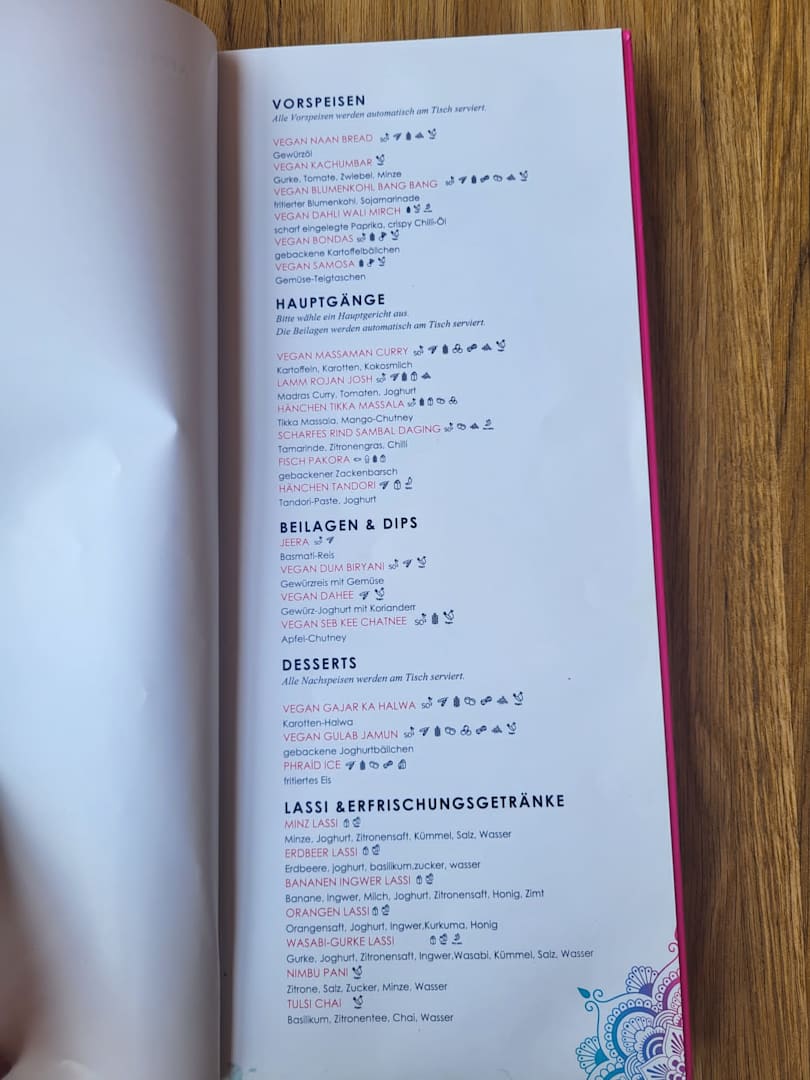 VORSPEISEN
Alle Vorspeisen werden automatisch am Tisch serviert.
VEGAN NAAN BREAD
Gewürzöl
VEGAN KACHUMBAR
Gurke, Tomate, Zwiebel, Minze
VEGAN BLUMENKOHL BANG BANG
fritierter Blumenkohl, Sojamarinade
VEGAN DAHLI WALI MIRCH
scharf eingelegte Paprika, crispy Chilli-Öl
VEGAN BONDAS
gebackene Kartoffelbällchen
VEGAN SAMOSA
Gemüse-Teigtaschen
HAUPTGÄNGE
Bitte wähle ein Hauptgericht aus.
Die Beilagen werden automatisch am Tisch serviert.
VEGAN MASSAMAN CURRY
Kartoffeln, Karotten, Kokosmilch
LAMM ROJAN JOSH
Madras Curry, Tomaten, Joghurt
HÄNCHEN TIKKA MASSALA
Tikka Massala, Mango-Chutney
SCHARFES RIND SAMBAL DAGING
Tamarinde, Zitronengras, Chilli
FISCH PAKORA
gebackener Zackenbarsch
HÄNCHEN TANDORI
Tandori-Paste, Joghurt
BEILAGEN & DIPS
JEERA
Basmati-Reis
VEGAN DUM BIRYANI
Gewürzreis mit Gemüse
VEGAN DAHEE
Gewürz-Joghurt mit Korianderr
VEGAN SEB KEE CHATNEE
Apfel-Chutney
DESSERTS
Alle Nachspeisen werden am Tisch serviert.
VEGAN GAJAR KA HALWA
Karotten-Halwa
VEGAN GULAB JAMUN
gebackene Joghurtbällchen
PHRAÏD ICE
fritiertes Eis
LASSI &ERFRISCHUNGSGETRÄNKE
MINZ LASSI
Minze, Joghurt, Zitronensaft, Kümmel, Salz, Wasser
ERDBEER LASSI
Erdbeere, joghurt, basilikum,zucker, wasser
BANANEN INGWER LASSI
Banane, Ingwer, Milch, Joghurt, Zitronensaft, Honig, Zimt
ORANGEN LASSI
Orangensaft, Joghurt, Ingwer,Kurkuma, Honig
WASABI-GURKE LASSI
Gurke, Joghurt, Zitronensaft, Ingwer,Wasabi, Kümmel, Salz, Wasser
NIMBU PANI
Zitrone, Salz, Zucker, Minze, Wasser
TULSI CHAI
Basilikum, Zitronentee, Chai, Wasser